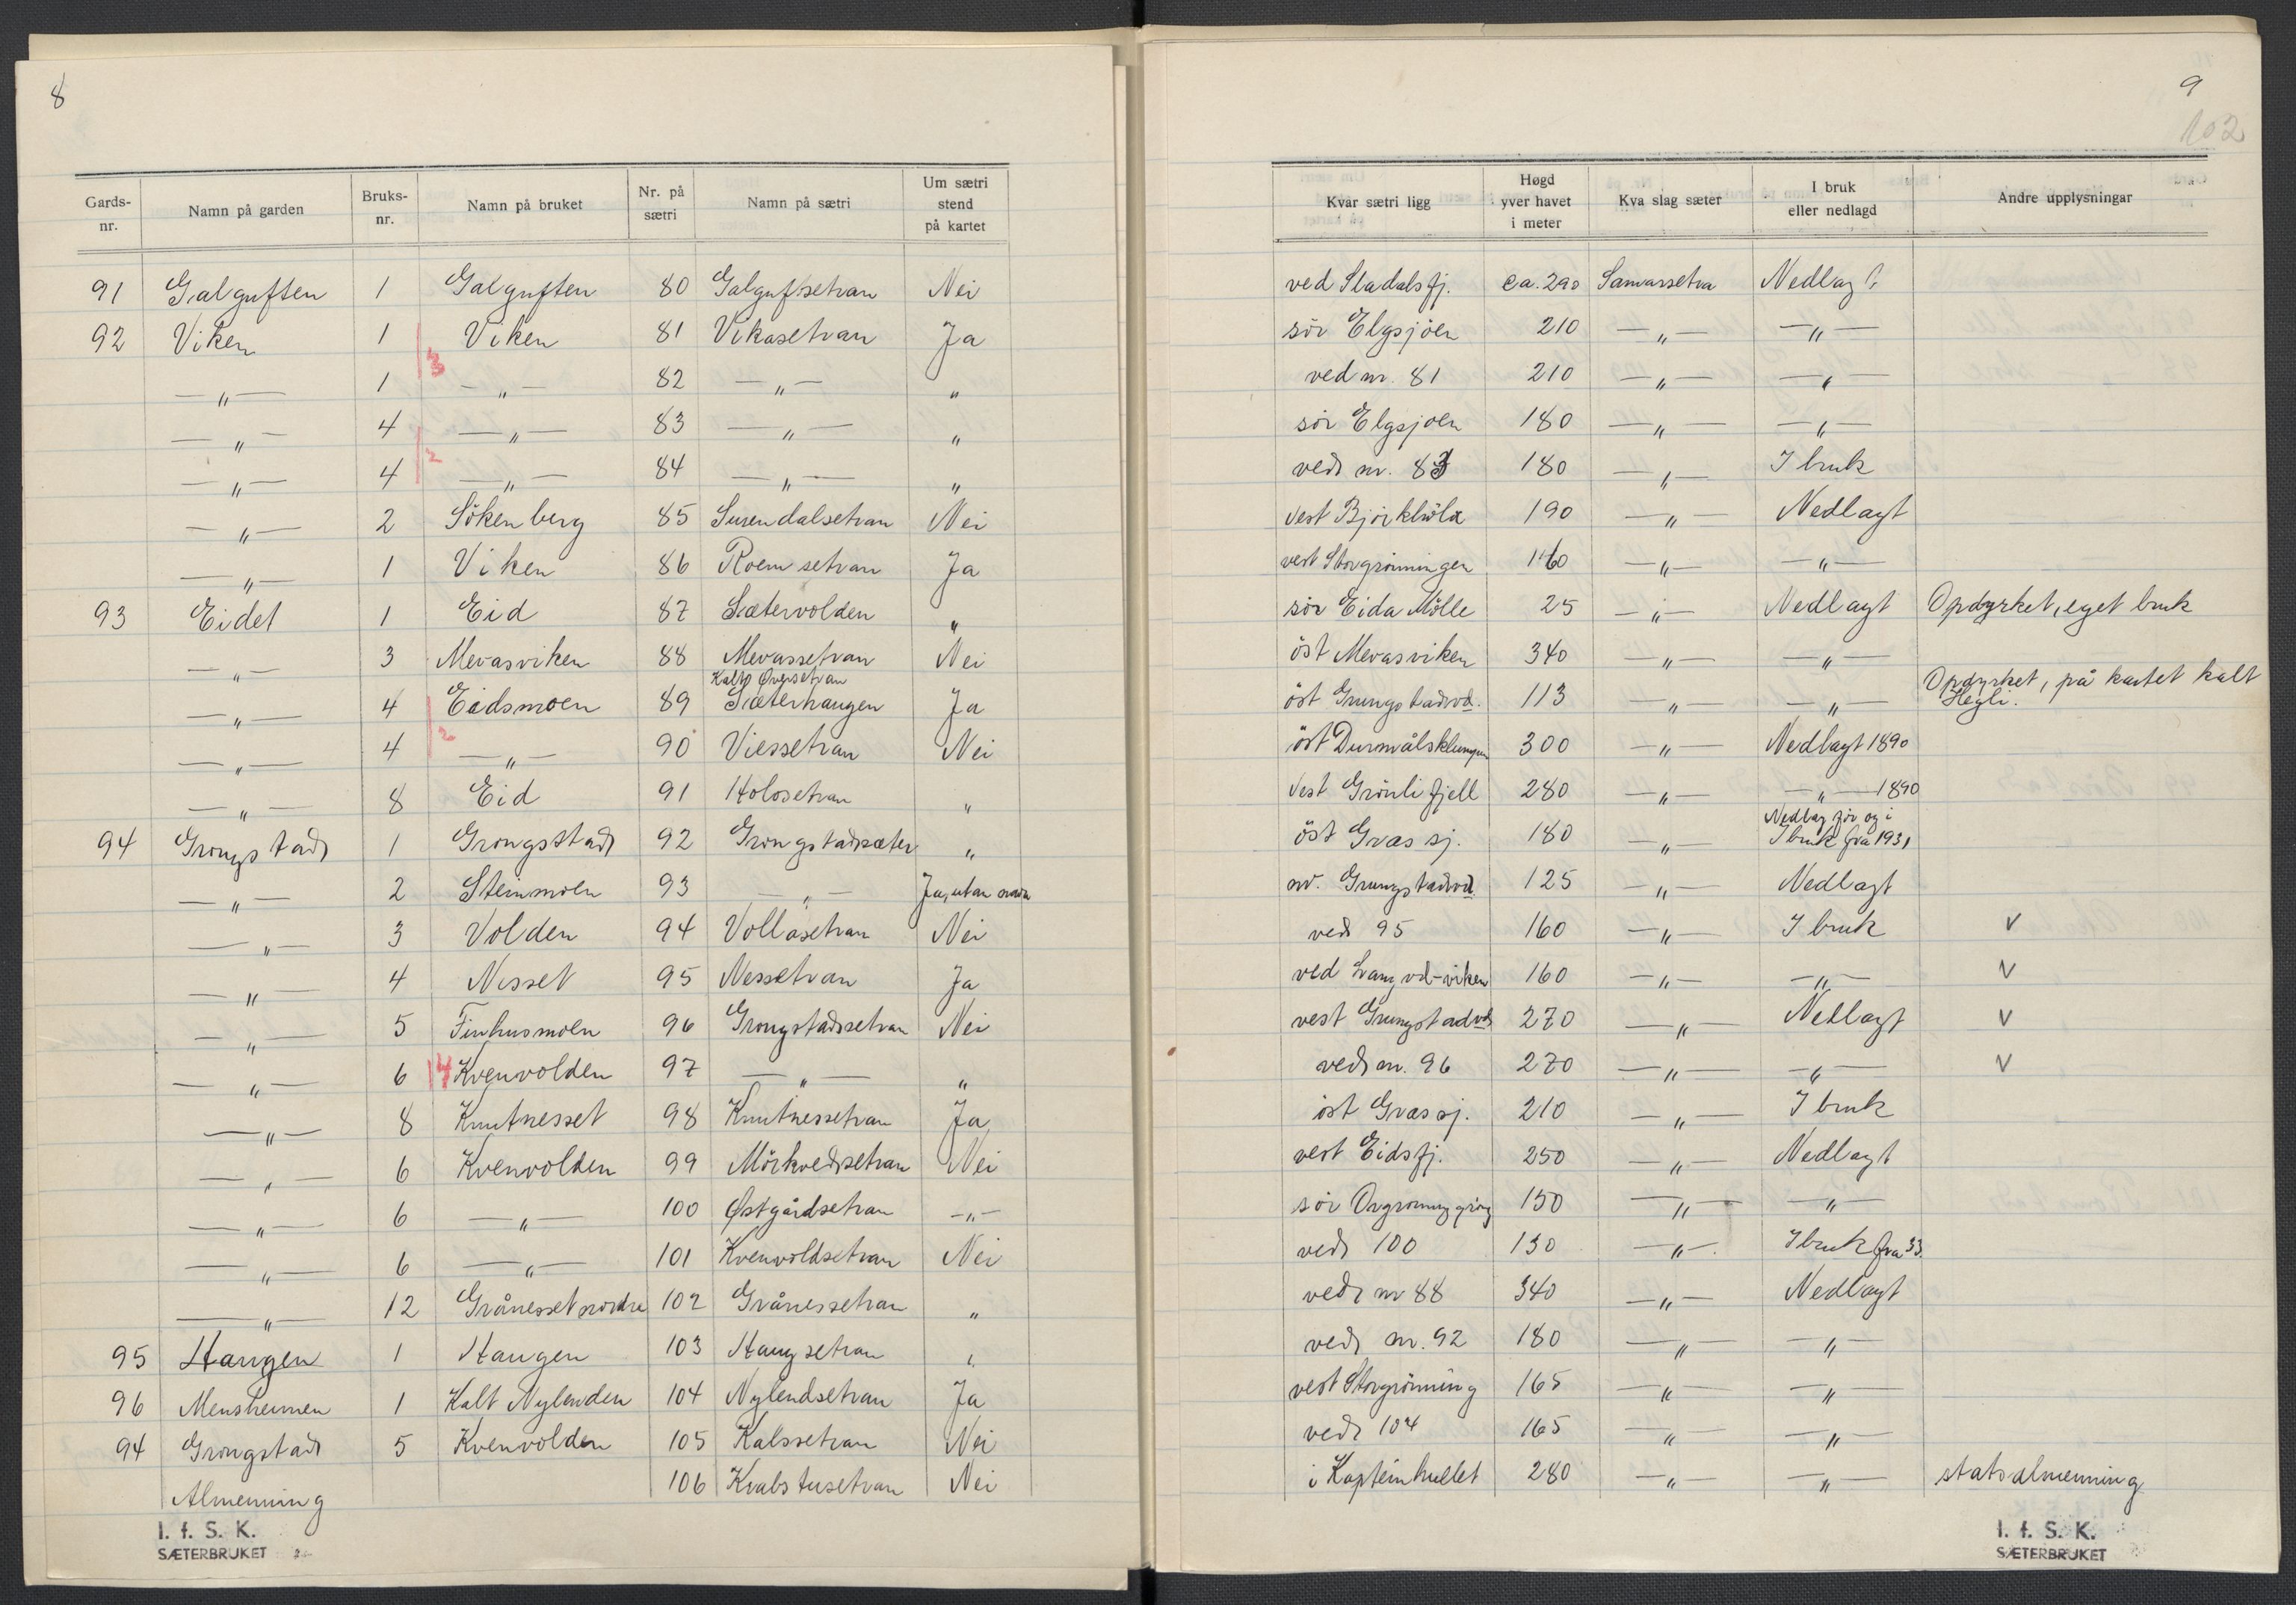 8
Gards-nr. Namn på garden Bruks-nr. Namn på bruket Nr. på sætri Namn på sætri Um sætri stend på kartet
91 Galguften 1 Galguften 80 Galgufsetran Nei
92 Viken 1 Viken 81 Vikasetran Ja
3
—„— 1 —„— 82 —„— „
—„— 4 —„— 83 —„— „
2
—„— 4 —„— 84 —„— „
—„— 2 Sökenberg 85 Surendalsetran Nei
—„— 1 Viken 86 Roemsetran Ja
93 Eidet 1 Eid 87 Sætervolden „
—„— 3 Mevasviken 88 Mevassetran Nei
Kalt Øversetran
—„— 4 Eidsmoen 89 Sæterhaugen Ja
2
—„— 4 —„— 90 Viessetran Nei
—„— 8 Eid 91 Holosetran „
94 Grongstad 1 Grongsstad 92 Grongstadsæter „
—„— 2 Steinmoen 93 —„— Ja, utan namn
—„— 3 Volden 94 Vollasetran Nei
—„— 4 Nesset 95 Nessetran Ja
—„— 5 Finhusmoen 96 Grongstadsetran Nei
—„— 6 4 Kvenvolden 97 —„— „
—„— 8 Knutnesset 98 Knutnessetran Ja
—„— 6 Kvenvolden 99 Mörkvedsetran Nei
—„— 6 —„— 100 Østgårdsetran —„—
—„— 6 —„— 101 Kvenvoldsetran Nei
—„— 12 Grånesset nordre 102 Grånessetran „
95 Haugen 1 Haugen 103 Haugsetran „
96 Mensheimen 1 Kalt Nylenden 104 Nylendsetran Ja
94 Grongstad 5 Kvenvolden 105 Kalssetran Nei
Almenning 106 Kvabstusetran Nei
I. f. S. K.
SÆTERBRUKET
9
102
Kvar sætri ligg Høgd yver havet i meter Kva slag sæter I bruk eller nedlagd Andre upplysningar
ved Sladalsfj. ca. 290 Samarsetra Nedlagt
sör Elgsjöen 210 —„— —„—
ved nr. 81 210 —„— —„—
sör Elgsjoen 180 —„— —„—
ved nr. 83 180 —„— I bruk
vest Björkhöla 190 —„— Nedlagt
vest Storgrönningen 160 —„— —„—
sör Eida Mölle 25 —„— Nedlagt Opdyrket, eget bruk
öst Mevasviken 340 —„— —„—
öst Grungstadvd. 113 —„— —„— Opdyrket, på kartet kalt
Hegli.
öst Durmålsklumpen 300 —„— Nedlagt 1890
Vest Grönlifjell 280 —„— —„— 1890
Nedlag för og i
öst Græssj. 180 —„— I bruk fra 1931
nv. Grungstadvd 125 —„— Nedlagt
ved 95 160 —„— I bruk V
ved Langvd-viken 160 —„— —„— V
vest Grungstadvd 270 —„— Nedlagt V
ved nr. 96 270 —„— —„— V
öst Græssj. 210 —„— I bruk
vest Eidsfj. 250 —„— Nedlagt
sör 150 —„— —„—
ved 100 130 —„— I bruk fra 33.
ved nr 88 340 —„— Nedlagt
ved nr. 92 180 —„— —„—
vest Storgrönning 165 —„— —„—
ved 104 165 —„— —„—
i Kapteinhullet 280 —„— —„— statsalmenning
I. f. S. K.
SÆTERBRUKET